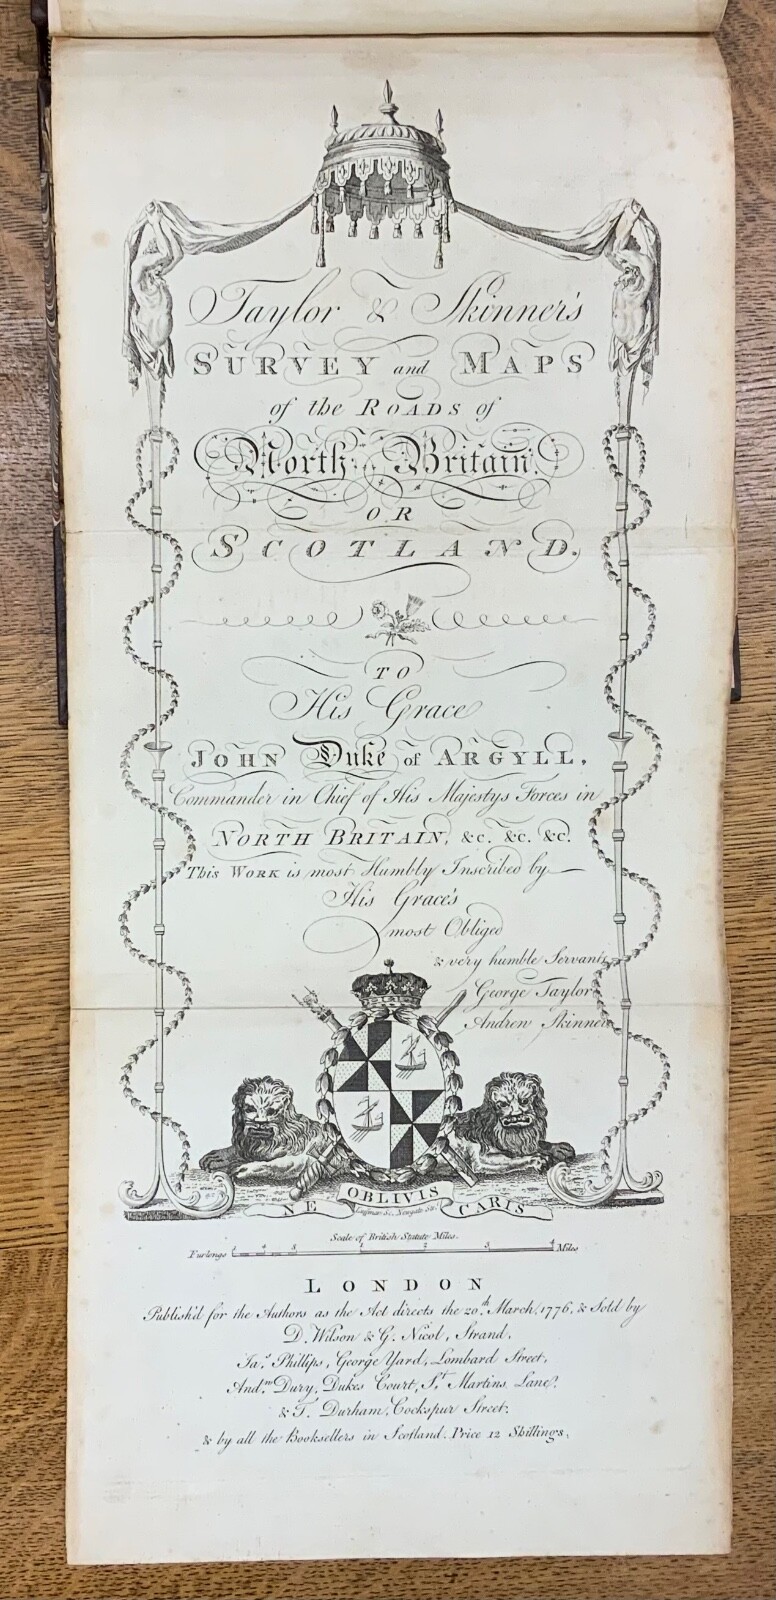 Taylor & Skinner's
SURVEY and MAPS
of the ROADS of
North Britain
OR
SCOTLAND.
TO
His Grace
JOHN Duke of ARGYLL,
Commander in Chief of His Majestys Forces in
NORTH BRITAIN, &c. &c. &c.
This WORK is most Humbly Inscribed by
His Grace's
most Obliged
& very humble Servants
George Taylor
Andrew Skinner
NE OBLIVIS CARIS
Luffman Sc. Newgate Str.
Scale of British Statute Miles.
Furlongs 4 8 1 2 3 4 Miles
LONDON
Publish'd for the Authors as the Act directs the 20th. March, 1776, & Sold by
D. Wilson & G. Nicol, Strand,
Jas. Phillips, George Yard, Lombard Street,
Andw. Dury, Dukes Court, St. Martins Lane,
& T. Durham, Cockspur Street,
& by all the Booksellers in Scotland. Price 12 Shillings.